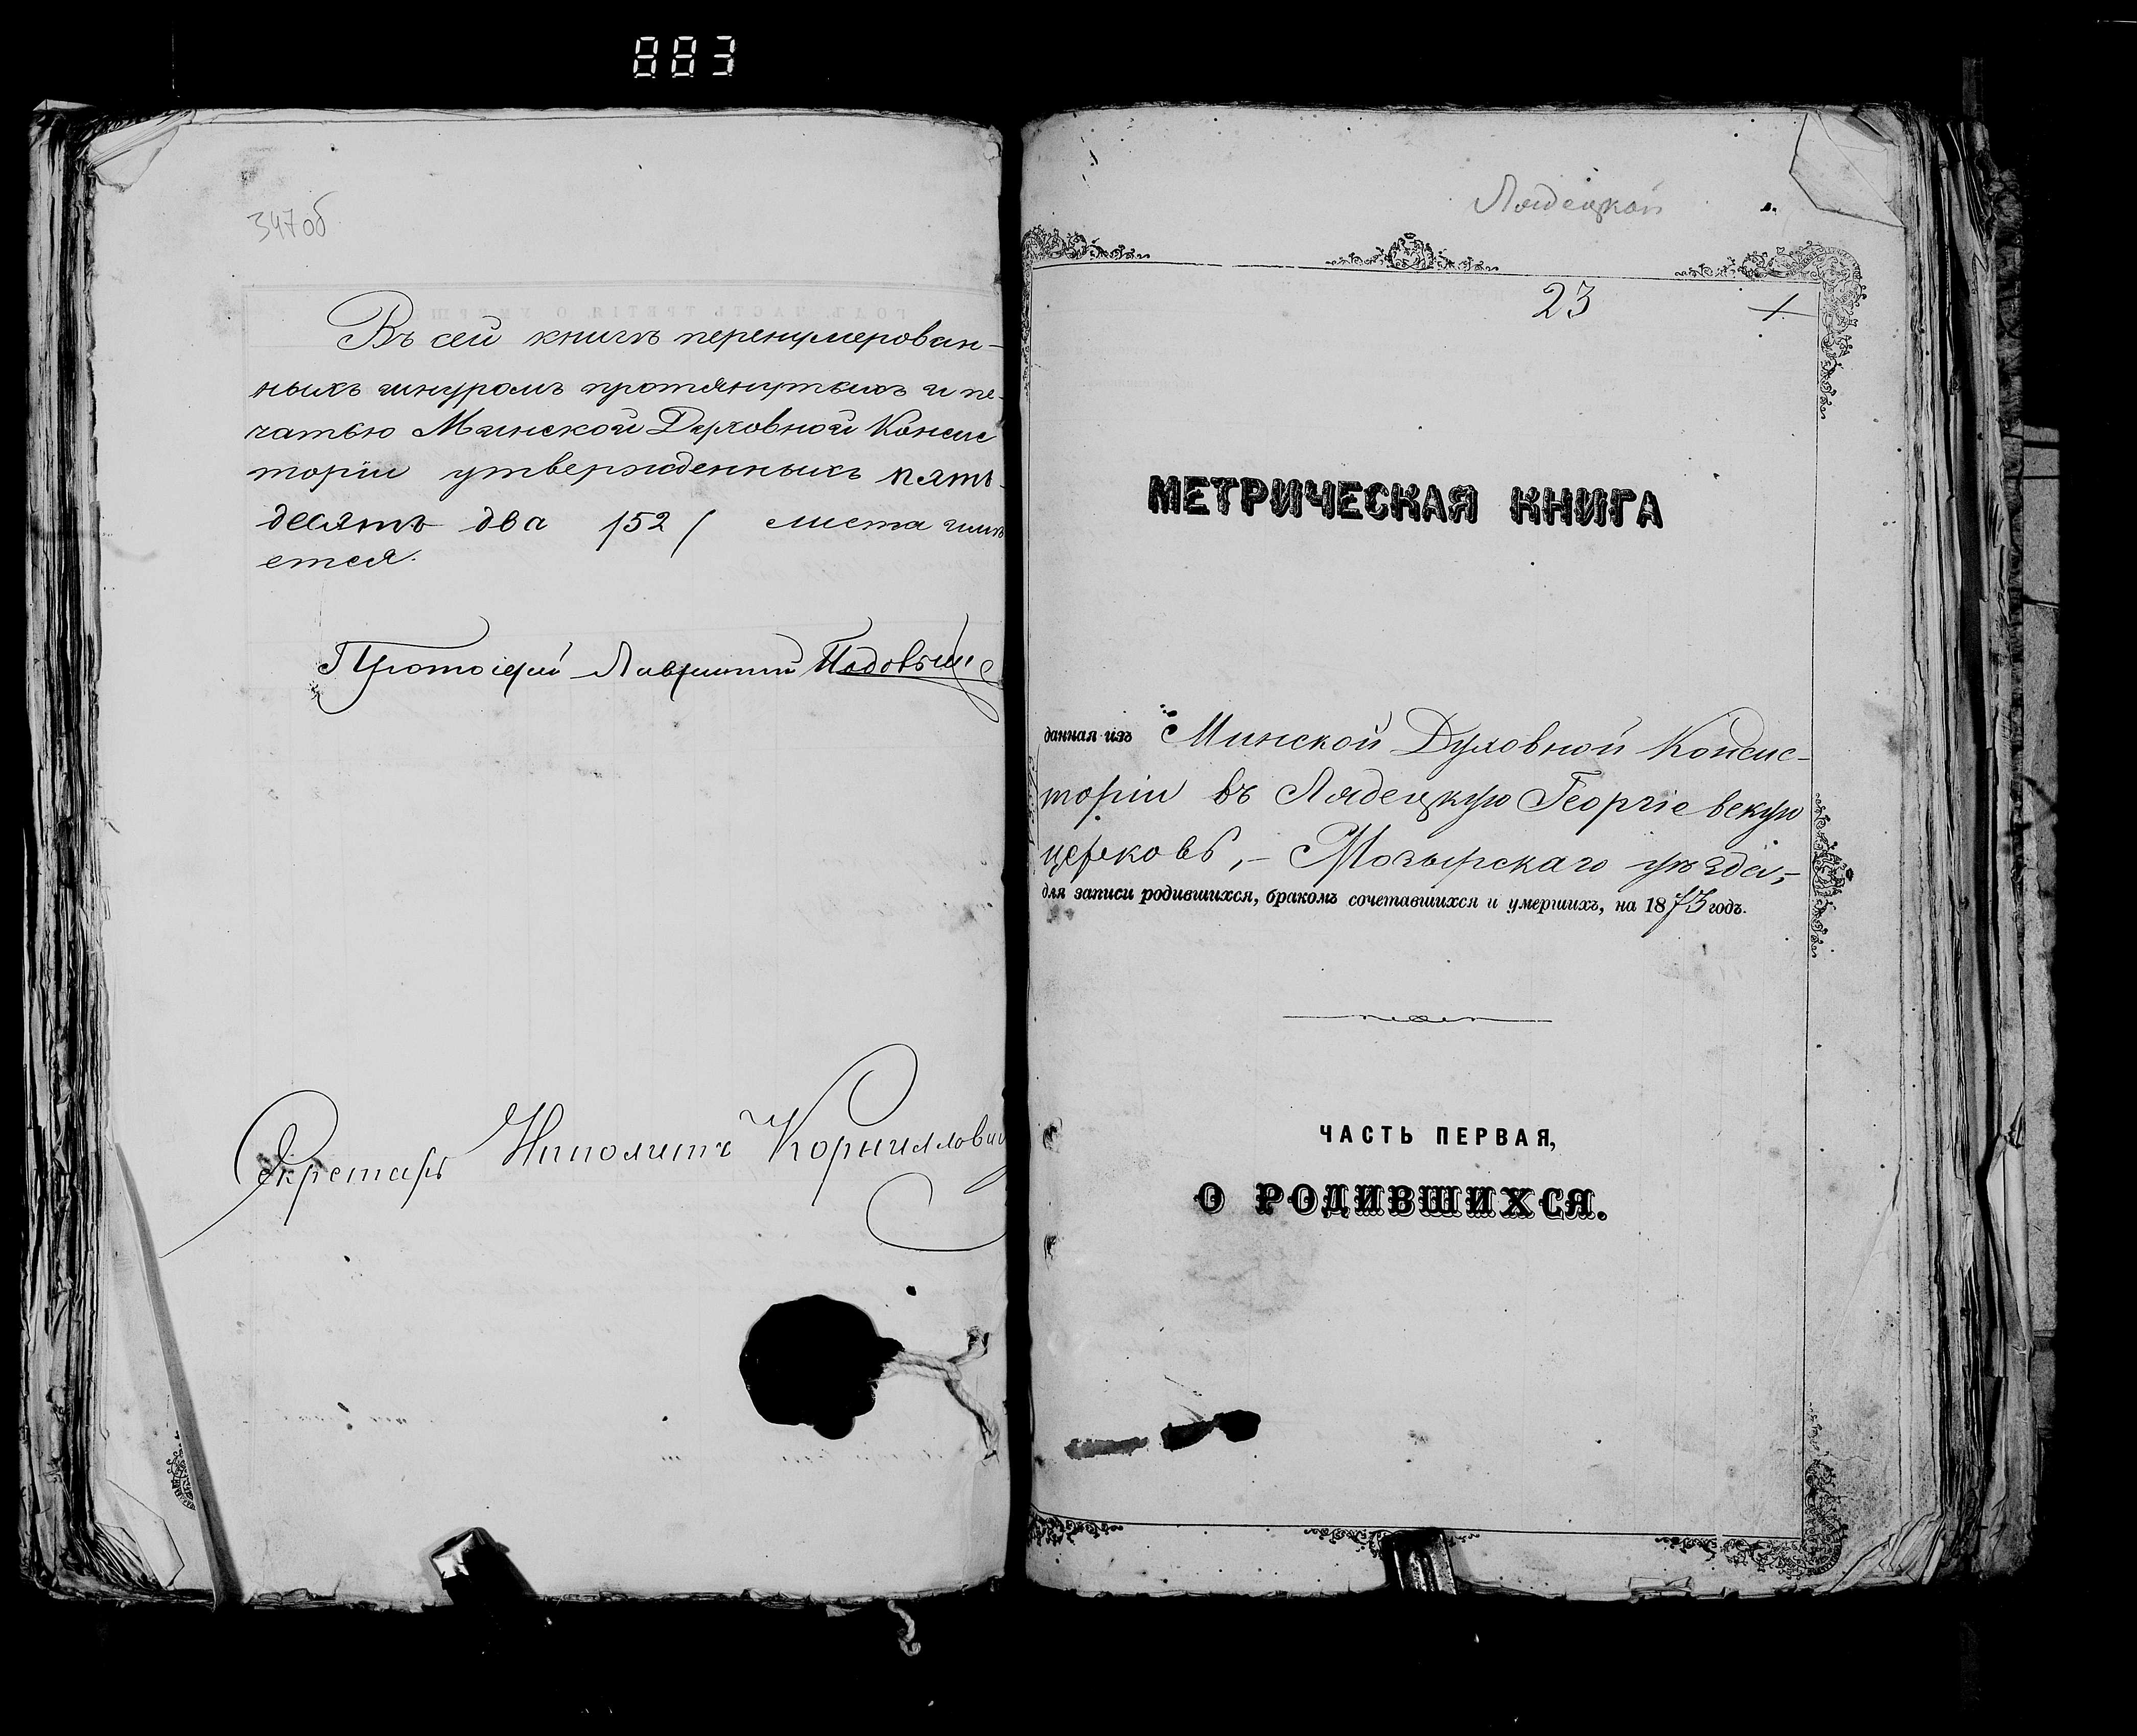 883
347об
Въ сей книгѣ перенумерован-
ныхъ шнуромъ протянутыхъ и пе-
чатью Минской Духовной Консис
торіи утвержденныхъ пять-
десятъ два /52/ листа имѣ
ется.
Протоіерей Лаврентій
Секретарь Ипполитъ Корнилович
Лядецкой
23
МЕТРИЧЕСКАЯ КНИГА
данная изъ Минской Духовной Консис-
торіи въ Лядецкую Георгіевскую
церковь,- Мозырскаго уѣзда,-
для записи родившихся, бракомъ сочетавшихся и умершихъ, на 1873 годъ.
ЧАСТЬ ПЕРВАЯ,
О РОДИВШИХСЯ.